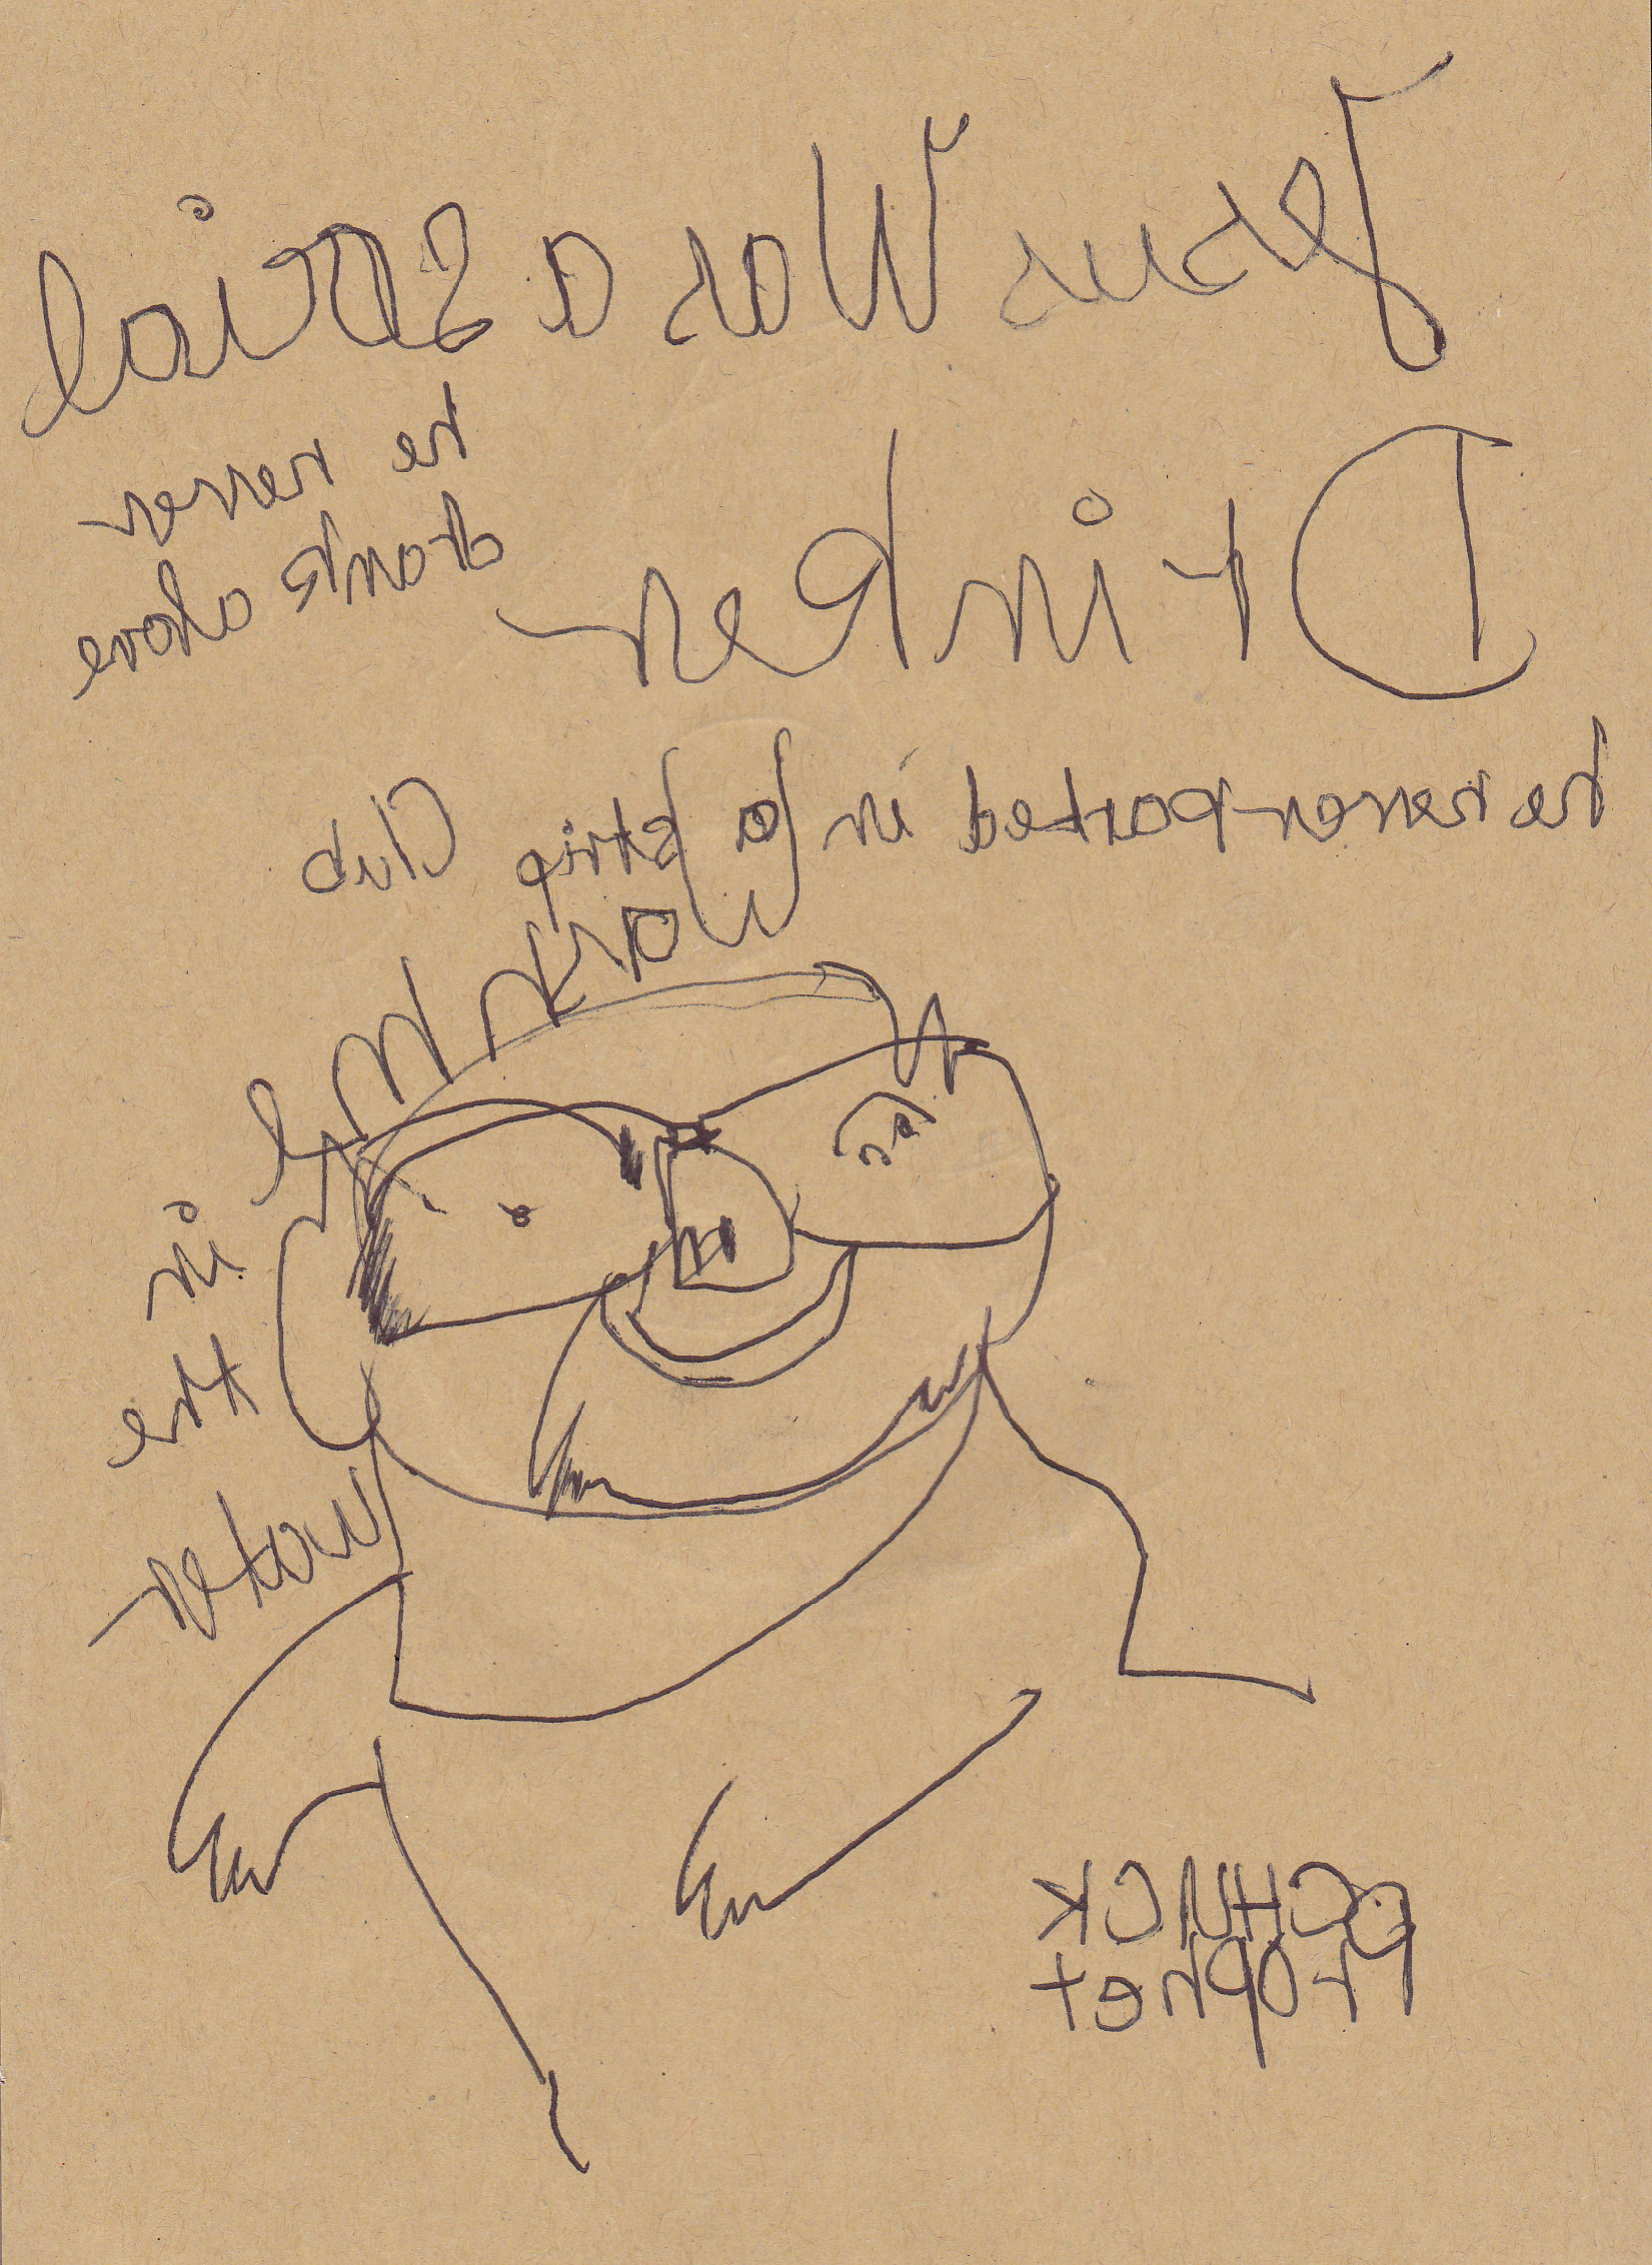 Jesus Was a Social
Drinker
he never
drank alone
he never parted in a Strip Club
in
the
water
CHUCK
Prophet